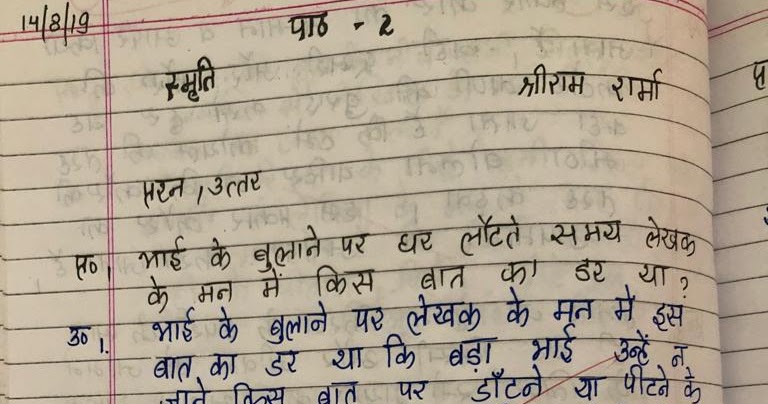 14/8/19 पाठ - 2
स्मृति श्रीराम शर्मा
प्रश्न, उत्तर
प्र०1. भाई के बुलाने पर घर लौटते समय लेखक
के मन में किस बात का डर था?
उ०1. भाई के बुलाने पर लेखक के मन में इस
बात का डर था कि बड़ा भाई उन्हें न
जाने किस बात पर डाँटने या पीटने के